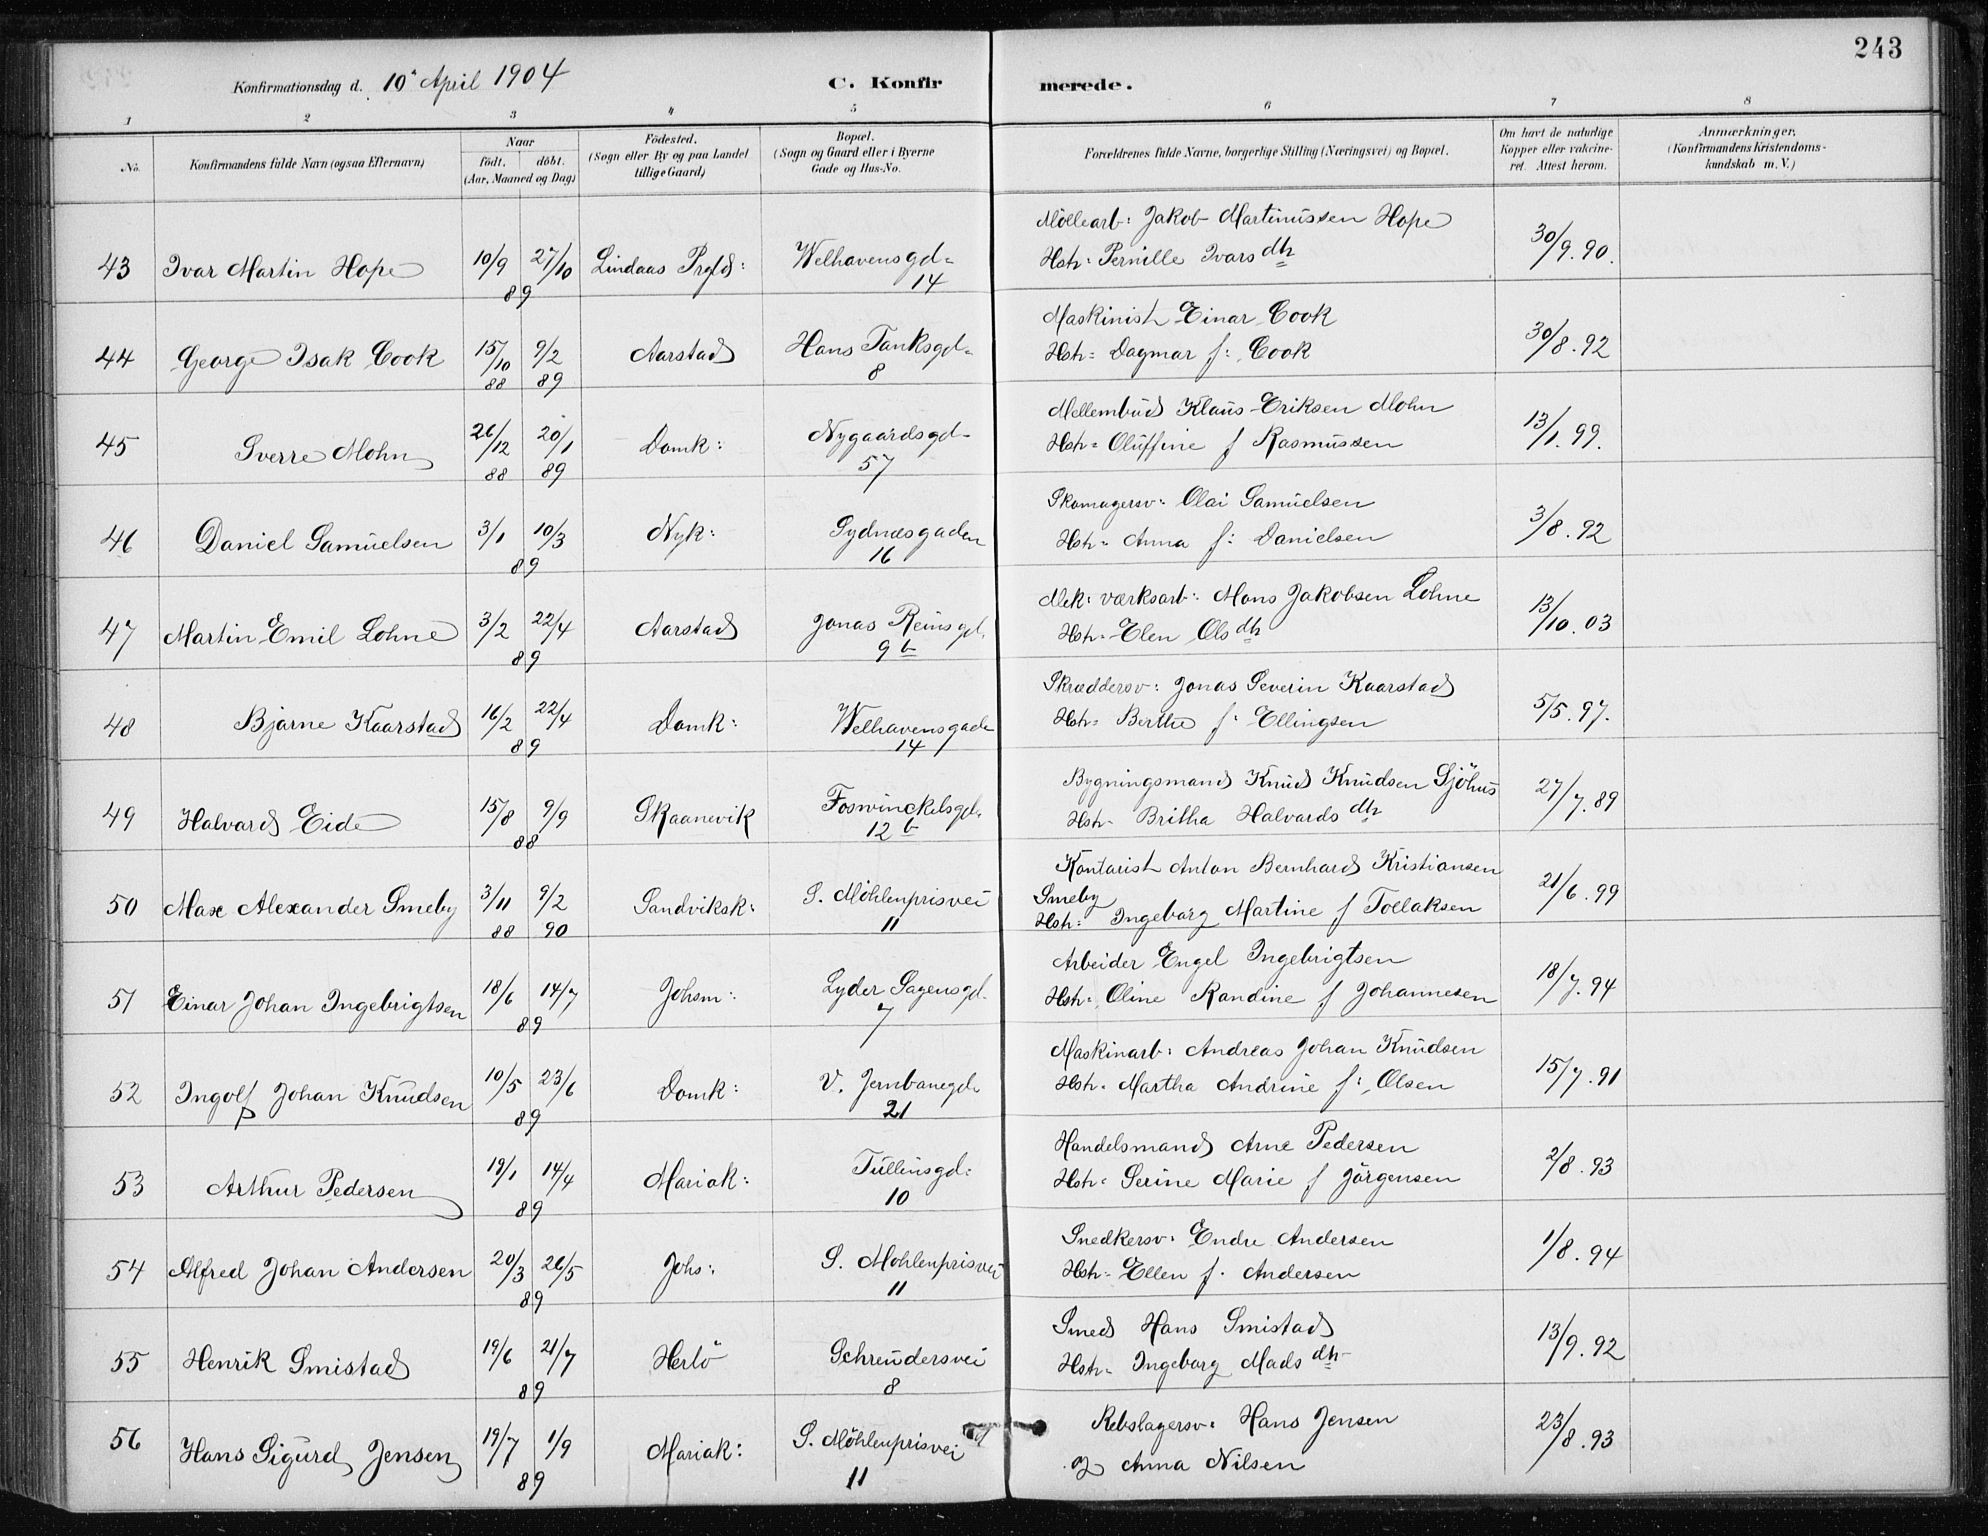 243
Konfirmationsdag d. 10de April 1904
C. Konfirmerede.
1 2 3 4 5 6 7 8
No.
Konfirmandens fulde Navn (ogsaa Efternavn)
Naar
födt. döbt.
(Aar, Maaned og Dag)
Födested.
(Sogn eller By og paa Landet
tillige Gaard)
Bopæl.
(Sogn og Gaard eller i Byerne
Gade og Hus-No.
Forældrenes fulde Navne, borgerlige Stilling (Næringsvei) og Bopæl.
Om havt de naturlige
Kopper eller vakcine-
ret. Attest herom.
Anmærkninger.
(Konfirmandens Kristendoms-
kundskab m. V.)
43 Ivar Martin Hope 10/9 27/10 89 Lindaas Prgld: Welhavensgd= 14
Möllearb: Jakob Martinussen Hope
Hstr: Pernille Ivarsdtr 30/9.90.
44 George Isak Cook 15/10 88 9/2 89 Aarstad Hans Tanksgd= 8
Maskinist Einar Cook
Hstr= Dagmar f: Cook 30/8.92
45 Sverre Mohn 26/12 88 20/1 89 Domk: Nygaardsgd- 57
Mellembud Klaus Eriksen Mohn
Hstr= Oluffine f Rasmussen 13/1.99.
46 Daniel Samuelsen 3/1 10/3 89 Nyk: Sydnæsgaden 16
Skomagersv: Olai Samuelsen
Hstr= Anna f: Danielsen 3/8.92
47 Martin Emil Lohne 3/2 22/4 89 Aarstad Jonas Reinsgd. 9 b
Mek: værksarb: Mons Jakobsen Lohne
Hstr= Elen Olsdtr 13/10.03
48 Bjarne Kaarstad 16/2 22/4 89 Domk: Welhavensgade 14
Skræddersv: Jonas Severin Kaarstad
Hstr= Berthe f: Ellingsen 5/5.97.
49 Halvard Eide 15/8 9/9 88 Skaanevik Foswinckelsgd. 12 b
Bygningsmand Knud Knudsen Sjöhus
Hstr- Britha Halvardsdtr 27/7.89
50 Max Alexander Smeby 3/11 88 9/2 90 Sandviksk: S. Möhlenprisvei 11
Kontorist Anton Bernhard Kristiansen
Smeby
Hstr= Ingeborg Martine f Tollaksen 21/6.99
51 Einar Johan Ingebrigtsen 18/6 14/7 89 Johsm: Lyder Sagensgd. 7
Arbeider Engel Ingebrigtsen
Hstr= Oline Randine f Johannesen 18/7.94
52 Ingolf Johan Knudsen 10/5 23/6 89 Domk: V. Jernbanegd. 21
Maskinarb: Andreas Johan Knudsen
Hstr. Martha Andrine f: Olsen 15/7.91
53 Arthur Pedersen 19/1 14/4 89 Mariak: Tullinsgd: 10
Handelsmand Arne Pedersen
Hstr= Serine Marie f Jörgensen 2/8.93
54 Alfred Johan Andersen 20/3 26/5 89 Johs: S. Möhlenprisvei 11
Snedkersv: Endre Andersen
Hstr- Ellen f. Andersen 1/8.94
55 Henrik Smistad 19/6 21/7 89 Herlö Schreudersvei 8
Smed Hans Smistad
Hstr= Ingeborg Madsdtr 13/9.92
56 Hans Sigurd Jensen 19/7 1/9 89 Mariak: S. Möhlenprisvei 11
Rebslagersv: Hans Jensen
og Anna Nilsen 23/8.93